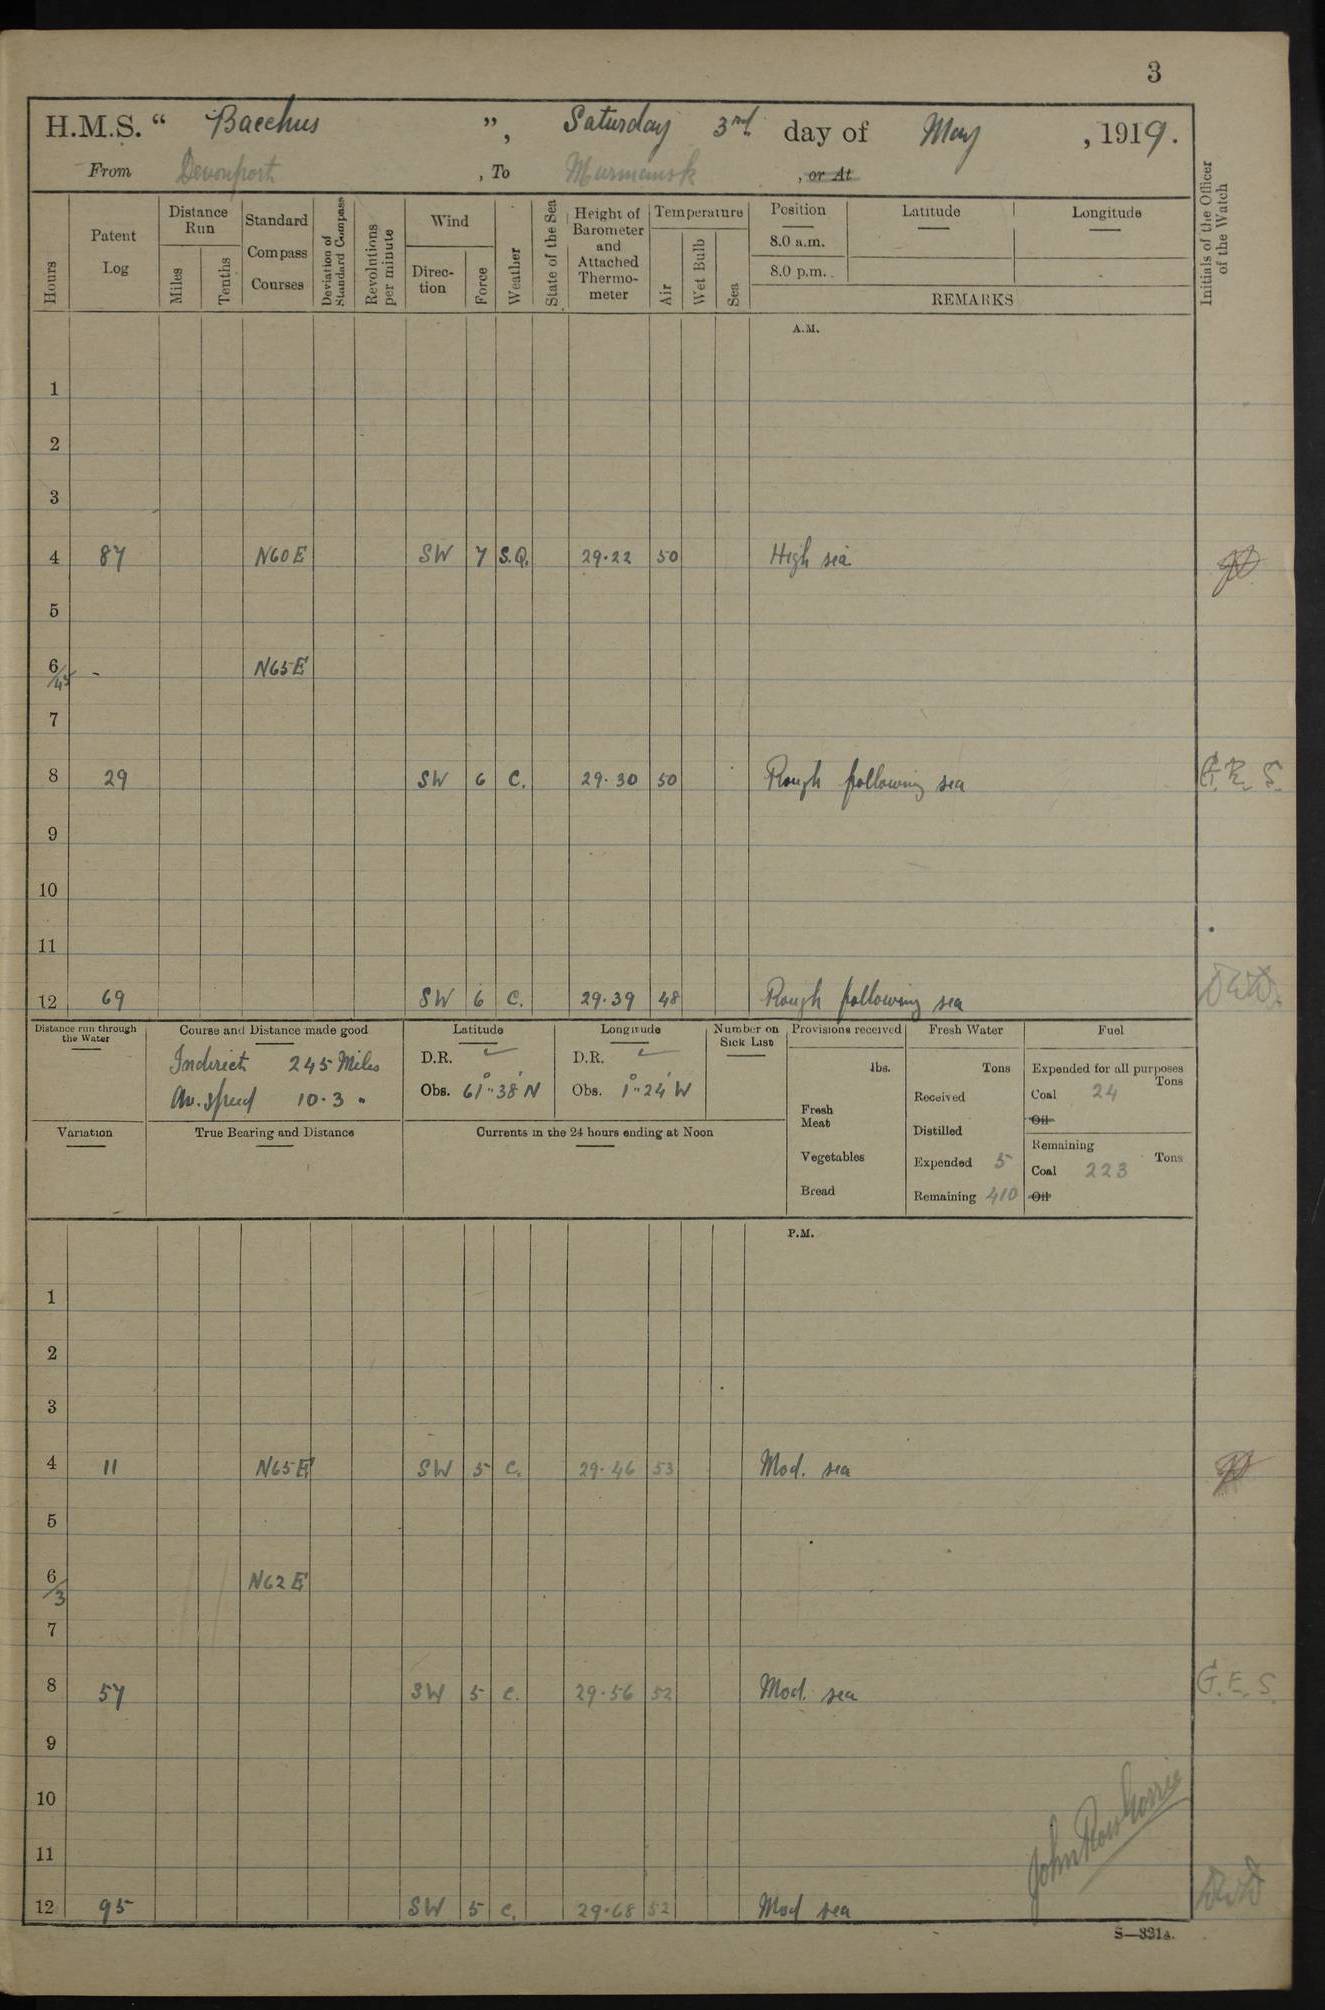 3
H.M.S. “ Bacchus ”, Saturday 3rd day of May, 1919.
From Devonport, To Murmansk, or At
Hours
Patent Log
Distance Run
Miles
Tenths
Standard Compass Courses
Deviation of Standard Compass
Revolutions per minute
Wind
Direc-tion
Force
Weather
State of the Sea
Height of Barometer and Attached Thermo-meter
Temperature
Air
Wet Bulb
Sea
Position
Latitude
Longitude
8.0 a.m.
8.0 p.m.
REMARKS
Initials of the Officer of the Watch
A.M.
1
2
3
4 87 N60E SW 7 S.Q. 29.22 50 High sea
5
6/45 - N65E
7
8 29 SW 6 C. 29.30 50 Rough following sea G.E.S.
9
10
11
12 69 SW 6 C. 29.39 48 Rough following sea
Distance run through the Water
Course and Distance made good
Indirect 245 Miles
Av. speed 10.3 "
Latitude
D.R. ✓
Obs. 61° 38' N
Longitude
D.R. ✓
Obs. 1° 24' W
Number on Sick List
Provisions received
lbs.
Fresh Meat
Vegetables
Bread
Fresh Water
Tons
Received
Distilled
Expended 5
Remaining 410
Fuel
Expended for all purposes
Tons
Coal 24
Oil
Remaining
Tons
Coal 223
Oil
Variation
True Bearing and Distance
Currents in the 24 hours ending at Noon
P.M.
1
2
3
4 11 N65E SW 5 C. 29.46 53 Mod. sea
5
6/3 N62E
7
8 57 SW 5 C. 29.56 52 Mod. sea G.E.S.
9
10
11
12 95 SW 5 C. 29.68 52 Mod sea
S—321a.